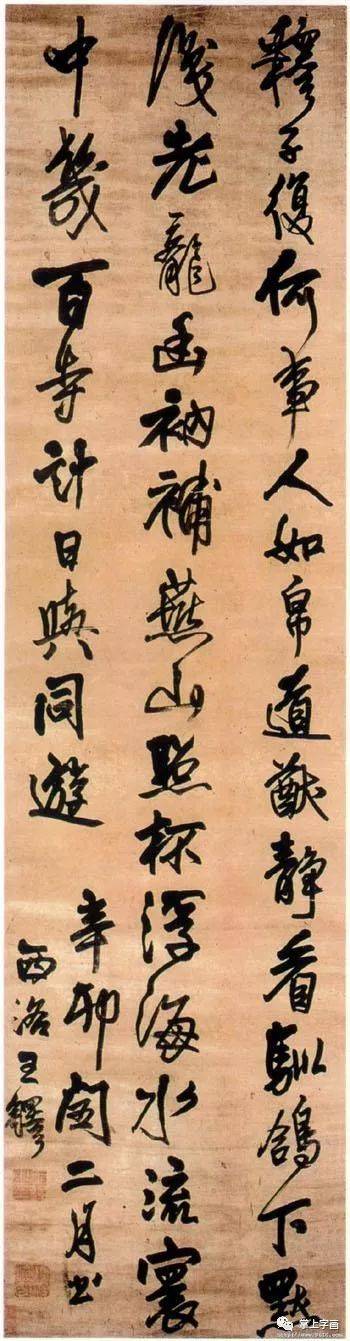 釋子復何事人如帛道猷靜看馴鴿下默
識老龍幽衲補燕山照杯浮海水流寰
中幾百寺計日與同遊
辛卯閏二月書
西洛王鐸
掌上字画